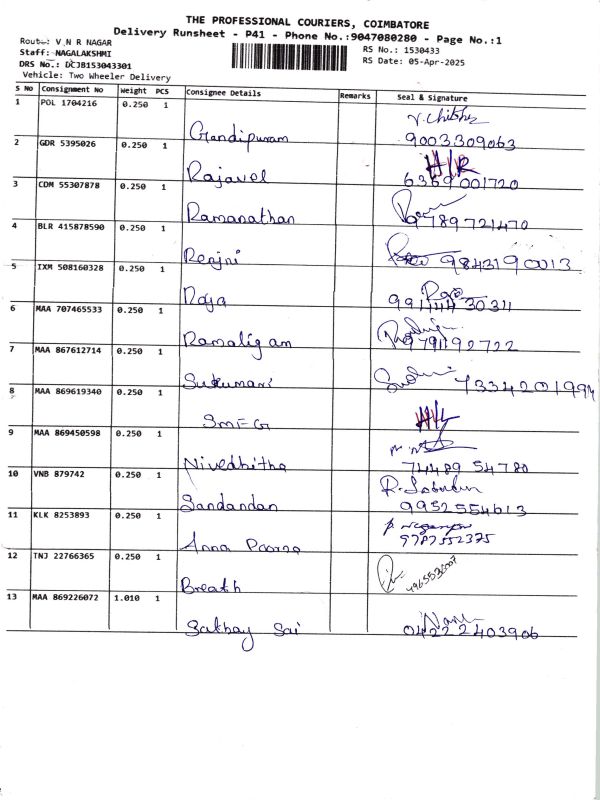 THE PROFESSIONAL COURIERS, COIMBATORE
Delivery Runsheet - P41 - Phone No.:9047080280 - Page No.:1
Route: V N R NAGAR
RS No.: 1530433
Staff: NAGALAKSHMI
RS Date: 05-Apr-2025
DRS No.: DCJB153043301
Vehicle: Two Wheeler Delivery
S No Consignment No Weight PCS Consignee Details Remarks Seal & Signature
1 POL 1704216 0.250 1
Gandipuram 9003309063
2 GDR 5395026 0.250 1
Rajavel 6369001720
3 CDM 55307878 0.250 1
Ramanathan 9789721470
4 BLR 415878590 0.250 1
Renjni 9843190013
5 IXM 508160328 0.250 1
Roja
6 MAA 707465533 0.250 1
Ramaligam 9791192722
7 MAA 867612714 0.250 1
Sukumari 7334201994
8 MAA 869619340 0.250 1
SMFG
9 MAA 869450598 0.250 1
Nivedhitha 74489 54780
10 VNB 879742 0.250 1
Sandandan 9952554613
11 KLK 8253893 0.250 1
Anna Poorna 9787552375
12 TNJ 22766365 0.250 1
Breath
13 MAA 869226072 1.010 1
Sathay Sai 04222403906